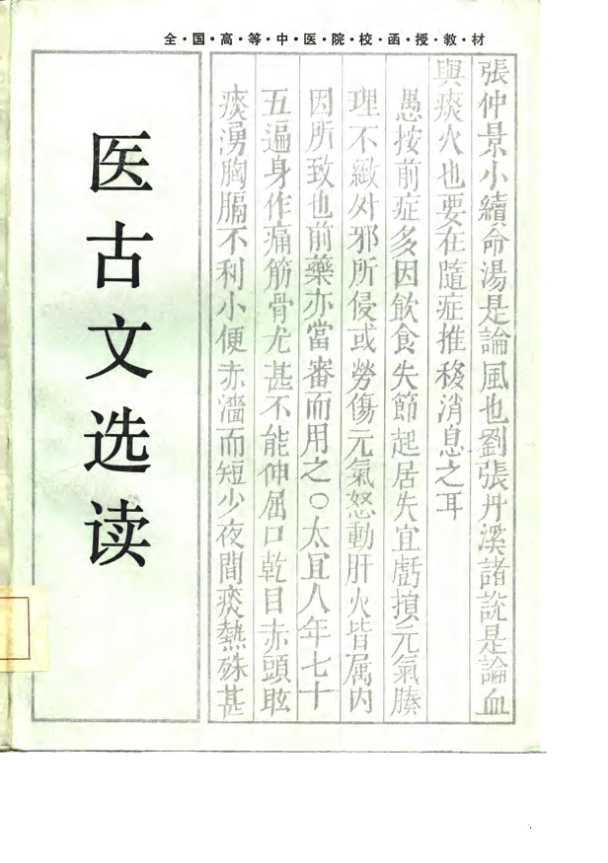 全·国·高·等·中·医·院·校·函·授·教·材
医古文选读
張仲景小續命湯是論風也劉張丹溪諸説是論血
與痰火也要在隨症推移消息之耳
愚按前症多因飲食失節起居失宜虧損元氣腠
理不緻外邪所侵或勞傷元氣怒動肝火皆属内
因所致也前藥亦當審而用之〇太宜人年七十
五遍身作痛筋骨尤甚不能伸屈口乾目赤頭眩
痰湧胸膈不利小便赤濇而短少夜間痰熱殊甚